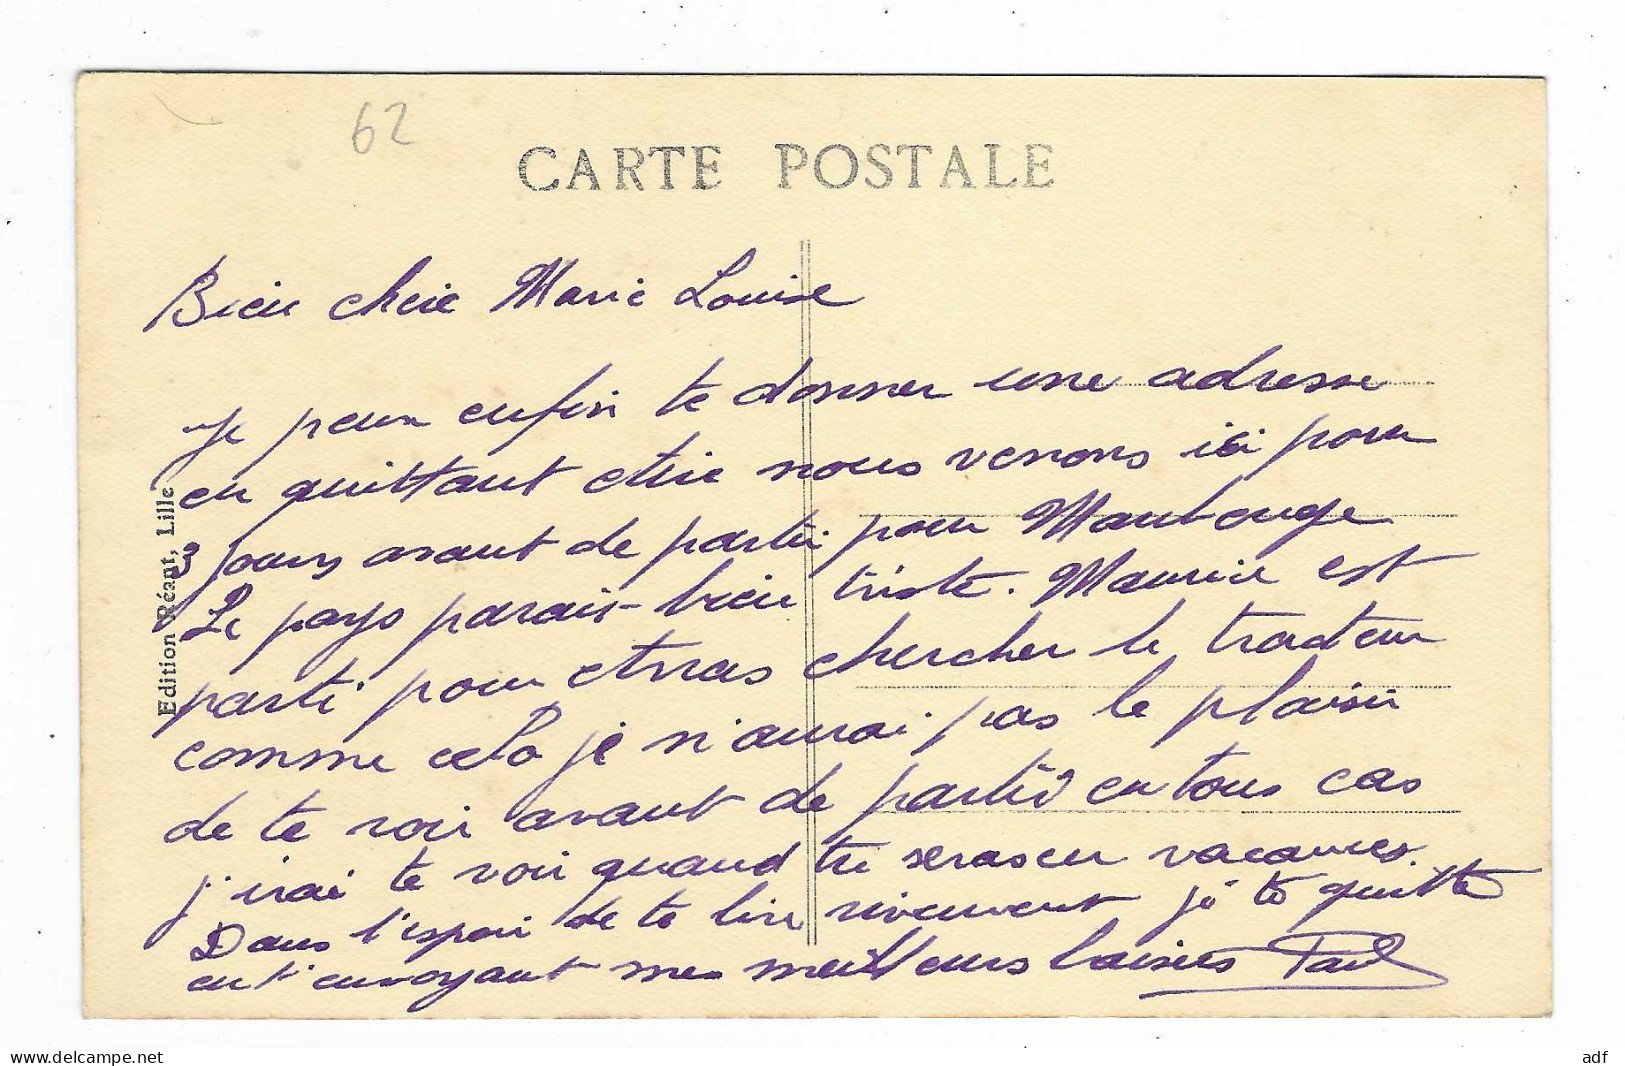 62
CARTE POSTALE
Bien chère Marie Louise
Je peux enfin te donner une adresse
en quittant Aire nous venons ici pour
3 jours avant de partir pour Maubeuge
Le pays parait bien triste. Maurice est
parti pour Arras chercher le tracteur
comme cela je n'aurai pas le plaisir
de te voir avant de partir en tous cas
j'irai te voir quand tu seras en vacances.
Dans l'espoir de te lire vivement je te quitte
en t'envoyant mes meilleurs baisers Paul
Edition Réant, Lille
www.delcampe.net
adf